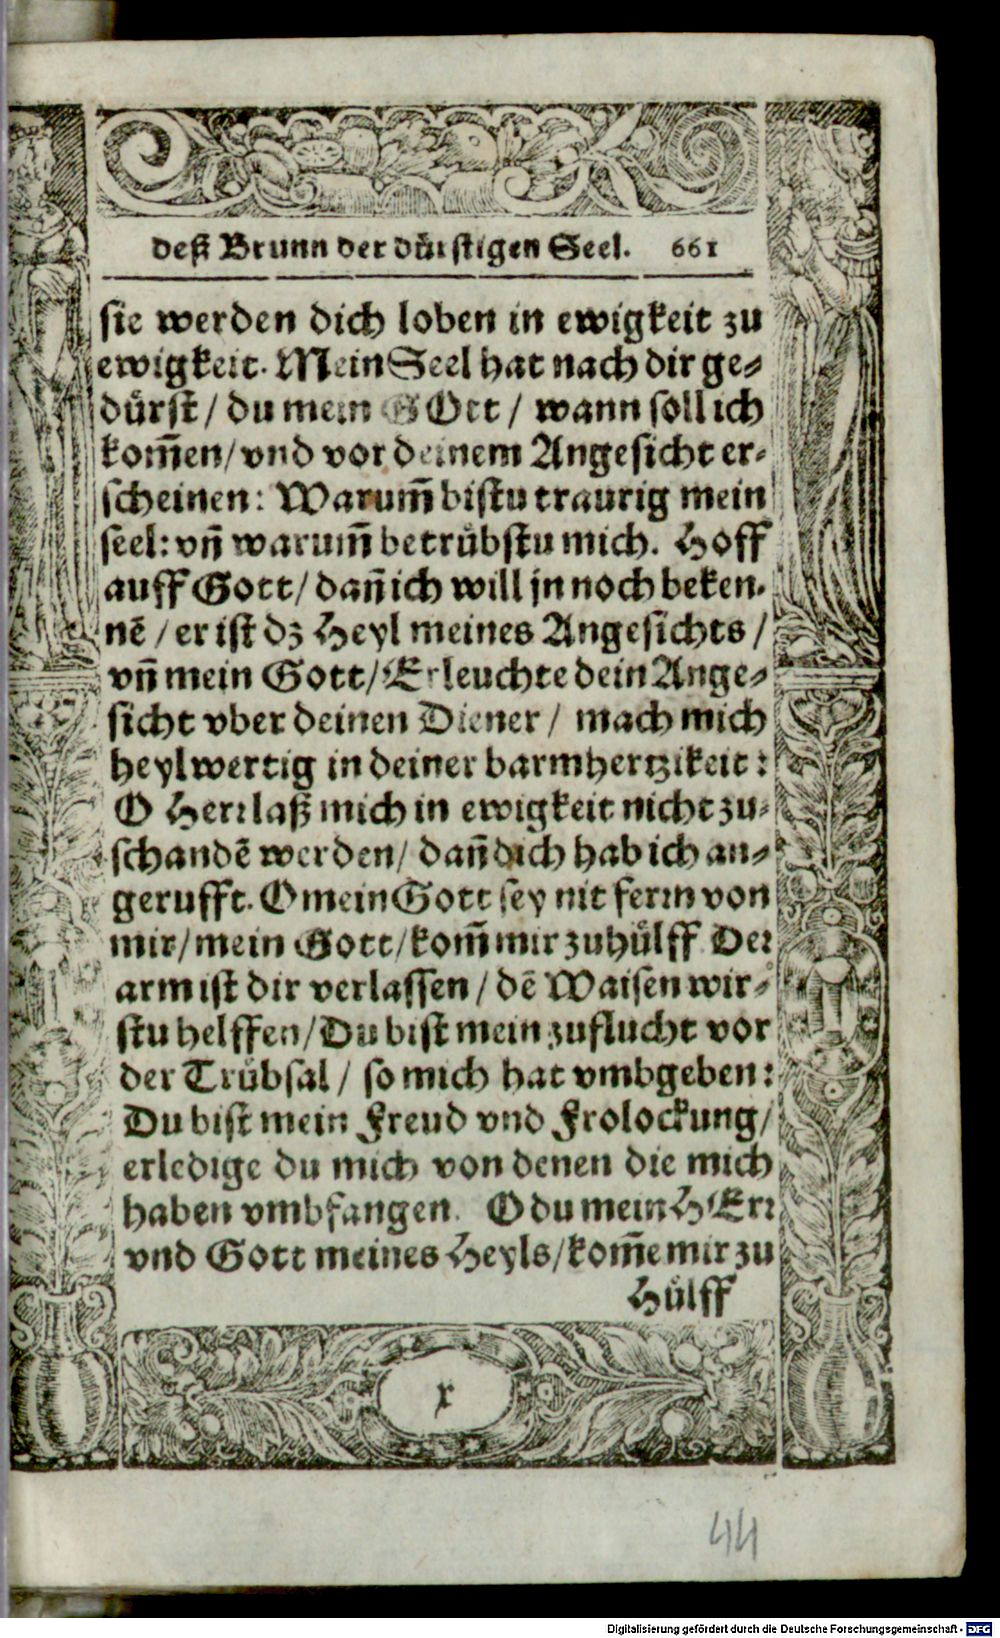 deß Brunn der dürstigen Seel. 661
sie werden dich loben in ewigkeit zu
ewigkeit. Mein Seel hat nach dir ge⸗
dürst / du mein GOtt / wann soll ich
kom̃en / vnd vor deinem Angesicht er⸗
scheinen: Warum̃ bistu traurig mein
seel: vn̄ warum̃ betrübstu mich. Hoff
auff Gott / dan̄ ich will jn noch beken⸗
nē / er ist dz Heyl meines Angesichts /
vn̄ mein Gott / Erleuchte dein Ange⸗
sicht vber deinen Diener / mach mich
heylwertig in deiner barmhertzikeit:
O Herr laß mich in ewigkeit nicht zu⸗
schandē werden / dan̄ dich hab ich an⸗
gerufft. O mein Gott sey nit ferrn von
mir / mein Gott / kom̃ mir zu hülff. Der
arm ist dir verlassen / dē Waisen wir⸗
stu helffen / Du bist mein zuflucht vor
der Trübsal / so mich hat vmbgeben:
Du bist mein Freud vnd Frolockung /
erledige du mich von denen die mich
haben vmbfangen. O du mein HErr
vnd Gott meines Heyls / kom̃e mir zu
Hülff
x
44
Digitalisierung gefördert durch die Deutsche Forschungsgemeinschaft - DFG